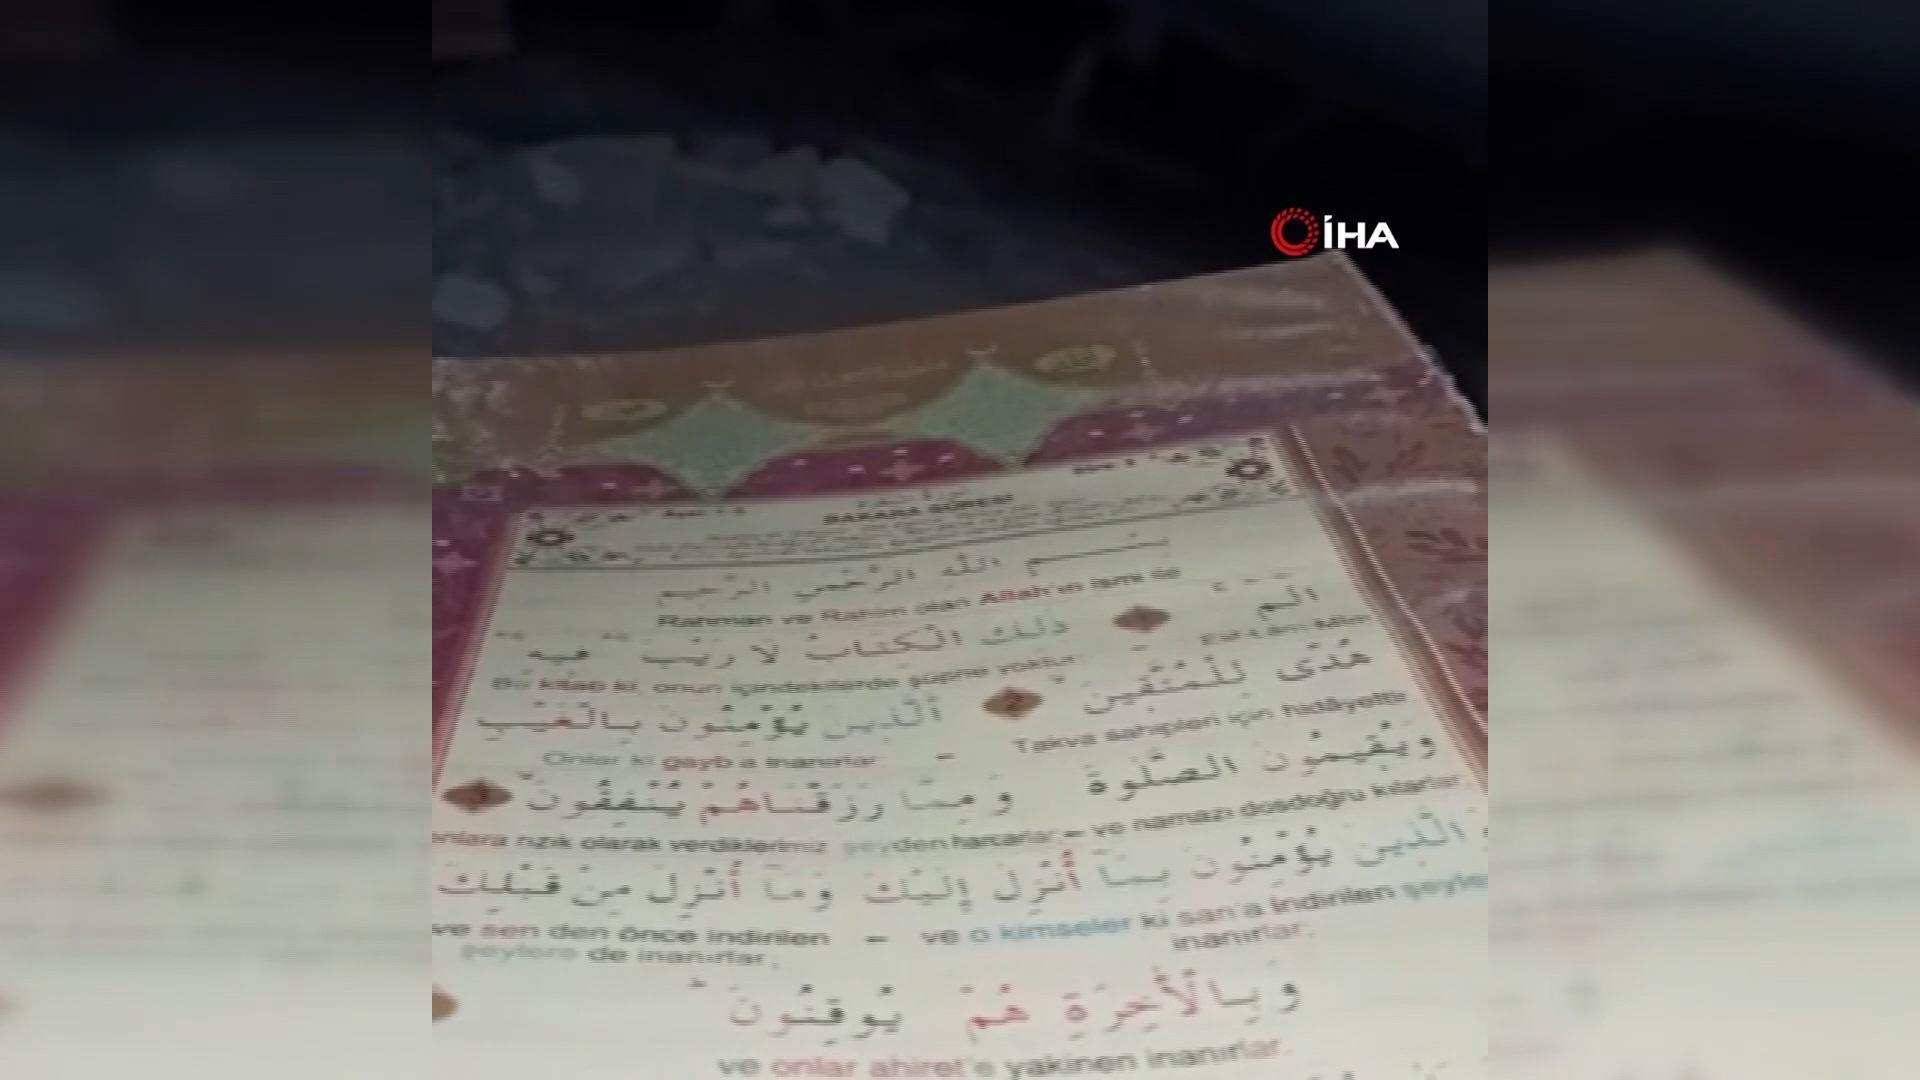 İHA
BAKARA SÛRESİ
بِسْمِ اللّٰهِ الرَّحْمٰنِ الرَّحِيمِ
Rahman ve Rahim olan Allah'ın ismi ile
الٓمٓ ذٰلِكَ الْكِتَابُ لَا رَيْبَ فِيهِ
Elif-Lâm-Mîm
Bu kitap ki, onun içindekilerde şüphe yoktur
هُدًى لِلْمُتَّقِينَ 2 اَلَّذِينَ يُؤْمِنُونَ بِالْغَيْبِ
Takva sahipleri için hidâyettir
Onlar ki gayb'a inanırlar
وَيُقِيمُونَ الصَّلٰوةَ وَمِمَّا رَزَقْنَاهُمْ يُنْفِقُونَ 3
ve namazı dosdoğru kılarlar
onlara rızık olarak verdiklerimiz şeyden harcarlar
الَّذِينَ يُؤْمِنُونَ بِمَٓا اُنْزِلَ اِلَيْكَ وَمَٓا اُنْزِلَ مِنْ قَبْلِكَ
ve o kimseler ki san'a indirilen şeyle
inanırlar
ve sen den önce indirilen
şeylere de inanırlar
وَبِالْاٰخِرَةِ هُمْ يُوقِنُونَ
ve onlar ahiret'e yakinen inanırlar